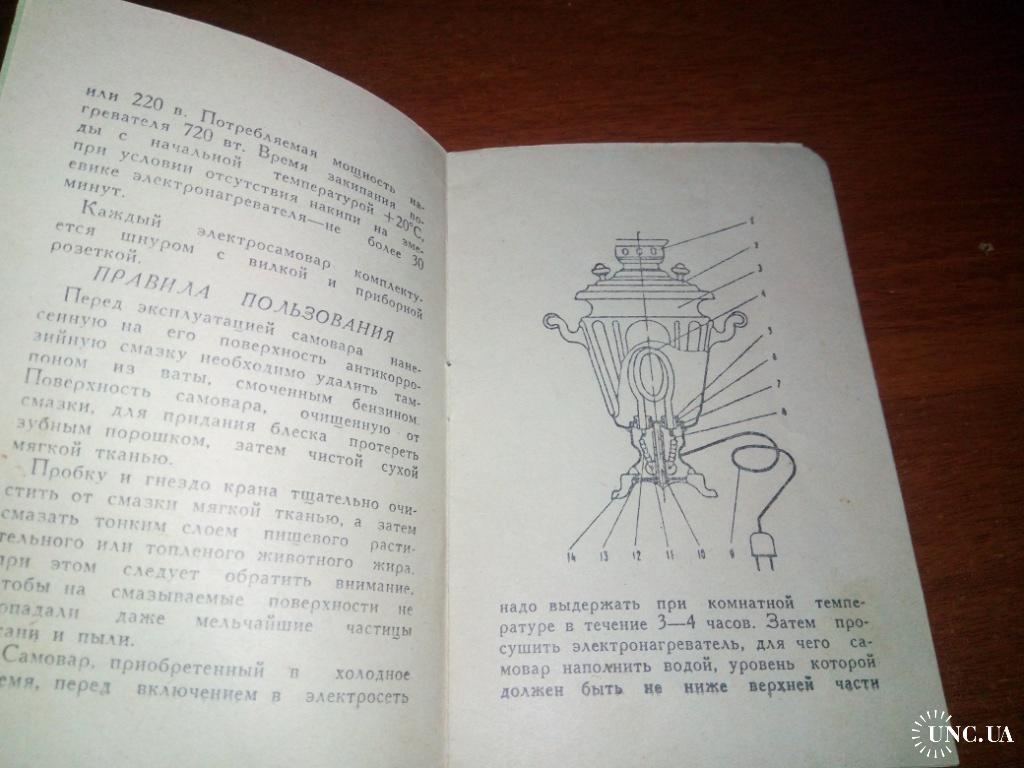 или 220 в. Потребляемая мощность на-
гревателя 720 вт. Время закипания во-
ды с начальной температурой +20°С,
при условии отсутствия накипи на зме-
евике электронагревателя—не более 30
минут.
Каждый электросамовар комплекту-
ется шнуром с вилкой и приборной
розеткой.
ПРАВИЛА ПОЛЬЗОВАНИЯ
Перед эксплуатацией самовара нане-
сенную на его поверхность антикорро-
зийную смазку необходимо удалить там-
поном из ваты, смоченным бензином.
Поверхность самовара, очищенную от
смазки, для придания блеска протереть
зубным порошком, затем чистой сухой
мягкой тканью.
Пробку и гнездо крана тщательно очи-
стить от смазки мягкой тканью, а затем
смазать тонким слоем пищевого расти-
тельного или топленого животного жира.
при этом следует обратить внимание,
чтобы на смазываемые поверхности не
опадали даже мельчайшие частицы
кани и пыли.
Самовар, приобретенный в холодное
емя, перед включением в электросеть
1
2
3
4
5
6
7
8
14 13 12 11 10 9
надо выдержать при комнатной темпе-
ратуре в течение 3—4 часов. Затем про-
сушить электронагреватель, для чего са-
мовар наполнить водой, уровень которой
должен быть не ниже верхней части
UNC.UA